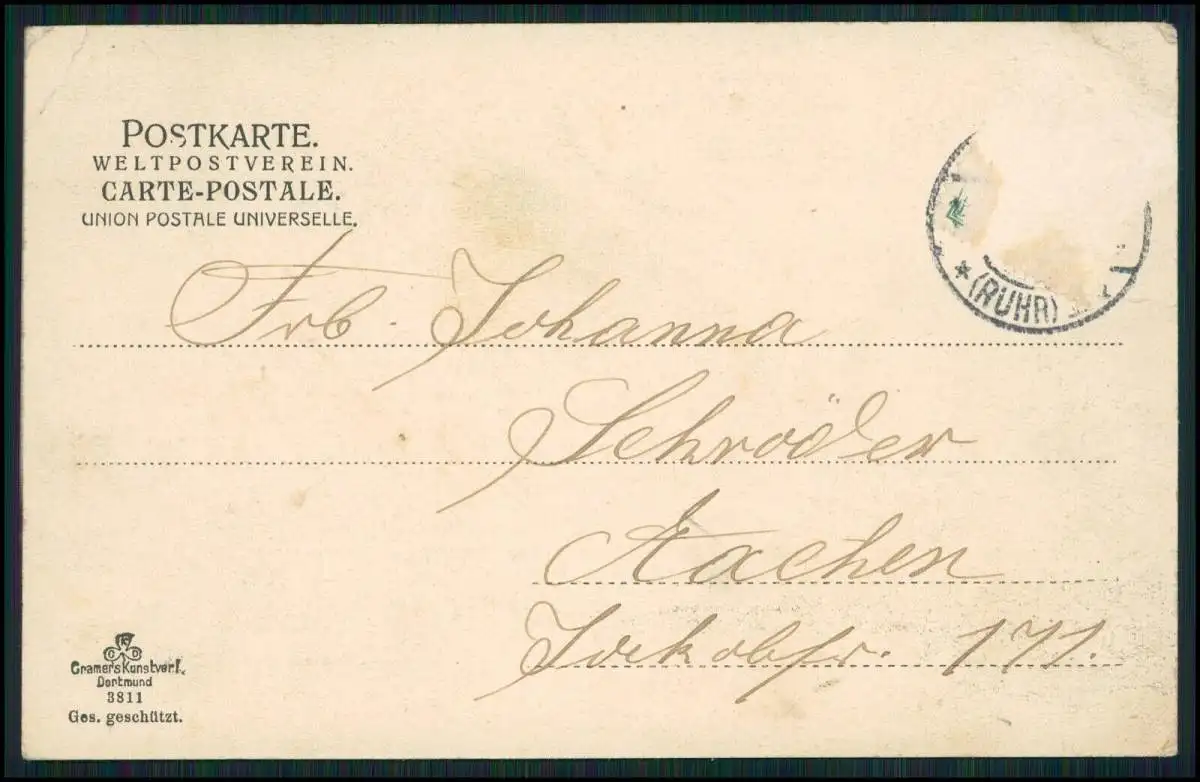 POSTKARTE.
WELTPOSTVEREIN.
CARTE-POSTALE.
UNION POSTALE UNIVERSELLE.
(RUHR)
Frl. Johanna
Schröder
Aachen
Jakobstr. 171.
Cramers Kunstverl.
Dortmund
3811
Ges. geschützt.